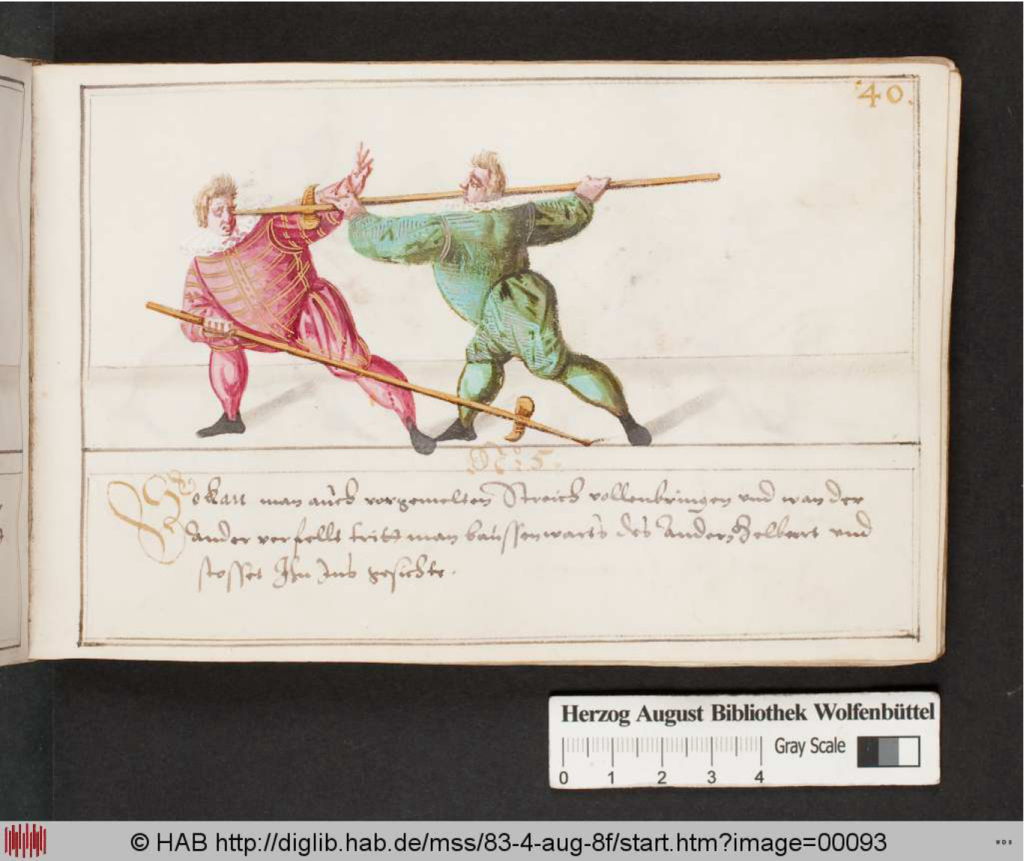 40.
No. 5.
So kan man auch vorgemelten Streich vollenbringen und wan der
ander verfellt tritt man baussenwarts des Anders Helbart und
stosset Ihn Ins gesichte.
Herzog August Bibliothek Wolfenbüttel
Gray Scale
0 1 2 3 4
© HAB http://diglib.hab.de/mss/83-4-aug-8f/start.htm?image=00093